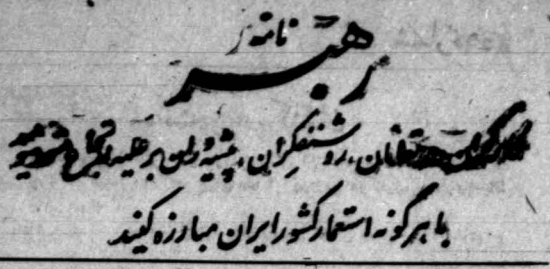 نامهٔ
رهبر
کارگران، دهقانان، روشنفکران، پیشه‌وران بر علیه ارتجاع متحد شوید
با هر گونه استعمار کشور ایران مبارزه کنید